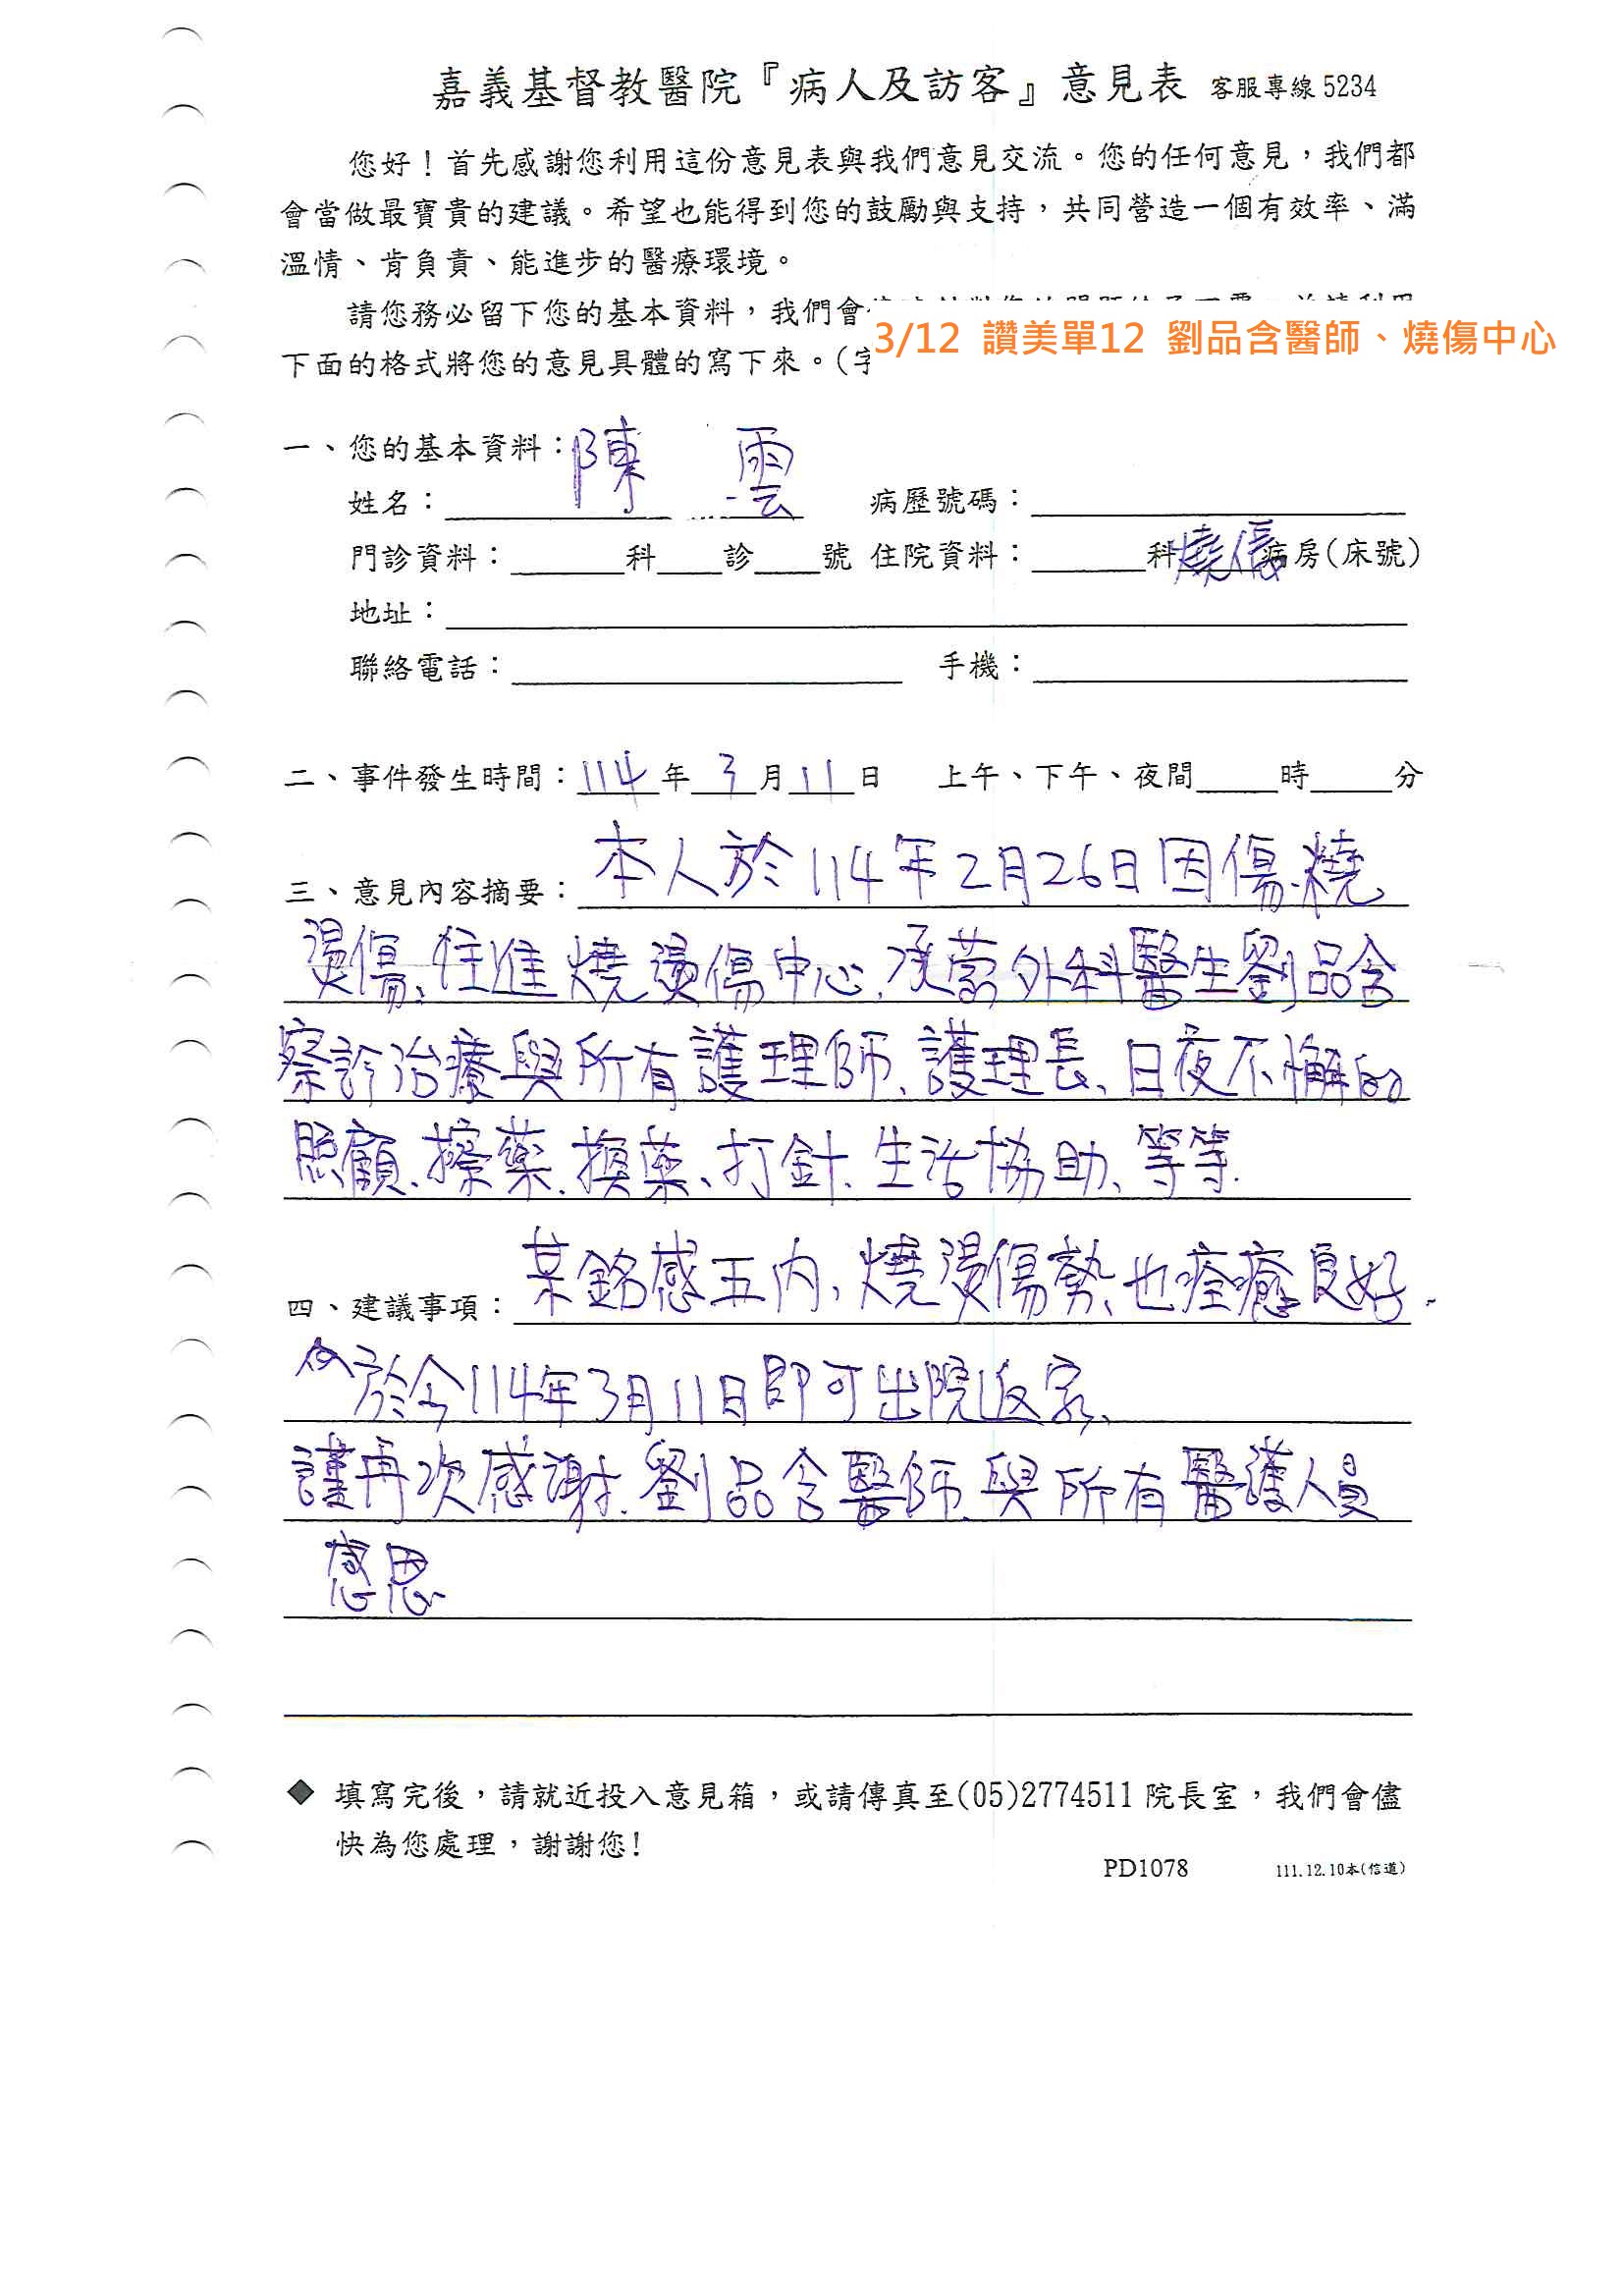 嘉義基督教醫院『病人及訪客』意見表 客服專線 5234
您好！首先感謝您利用這份意見表與我們意見交流。您的任何意見，我們都
會當做最寶貴的建議。希望也能得到您的鼓勵與支持，共同營造一個有效率、滿
溫情、肯負責、能進步的醫療環境。
請您務必留下您的基本資料，我們會
3/12 讚美單12 劉品含醫師、燒傷中心
下面的格式將您的意見具體的寫下來。(字
一、您的基本資料：
姓名：陳 雲 病歷號碼：
門診資料：科 診 號 住院資料：科 燒傷 病房(床號)
地址：
聯絡電話： 手機：
二、事件發生時間：114年3月11日 上午、下午、夜間 時 分
三、意見內容摘要：本人於114年2月26日因傷.燒
燙傷、住進燒燙傷中心.承蒙外科醫生劉品含
察診治療與所有護理師、護理長、日夜不懈的
照顧、擦藥、換藥、打針、生活協助、等等.
四、建議事項：某銘感五內、燒燙傷勢、也痊癒良好.
於今114年3月11日即可出院返家、
謹再次感謝.劉品含醫師.與所有醫護人員
感恩
◆ 填寫完後，請就近投入意見箱，或請傳真至(05)2774511 院長室，我們會儘
快為您處理，謝謝您!
PD1078 111.12.10本(信道)